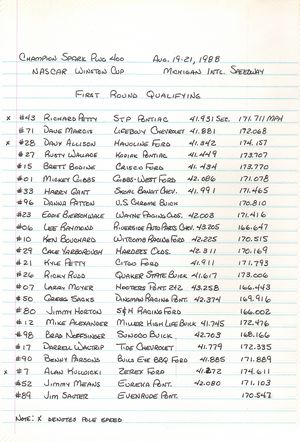 Champion Spark Plug 400 Aug. 19-21, 1988
NASCAR Winston Cup Michigan Intl. Speedway
First Round Qualifying
x #43 Richard Petty STP Pontiac 41.931 sec. 171.711 MPH
#71 Dave Marcis Lifebuoy Chevrolet 41.881 172.068
x #28 Davy Allison Havoline Ford 41.342 174.157
#27 Rusty Wallace Kodiak Pontiac 41.449 173.707
#15 Brett Bodine Crisco Ford 41.434 173.770
#01 Mickey Gibbs Gibbs-West Ford 42.086 171.078
#33 Harry Gant Skoal Bandit Chev. 41.991 171.465
#96 Dana Patton U.S. Chrome Buick 170.810
#23 Eddie Bierschwale Wayne Paging Olds. 42.003 171.416
#06 Lee Raymond Riverside Auto Parts Chev. 43.205 166.647
#10 Ken Bouchard Whitcomb Racing Ford 42.225 170.515
#29 Cale Yarborough Hardee's Olds. 42.311 170.169
#21 Kyle Petty Citgo Ford 41.911 171.793
#26 Ricky Rudd Quaker State Buick 41.617 173.006
#07 Larry Moyer Hooters Pont 43.258 166.443
#50 Greg Sacks Dingman Racing Pont. 42.374 169.916
#80 Jimmy Horton S&H Racing Ford 166.002
#12 Mike Alexander Miller High Life Buick 41.745 172.476
#98 Brad Noffsinger Sunoco Buick 42.703 168.166
#17 Darrell Waltrip Tide Chevrolet 41.779 172.335
#90 Benny Parsons Bulls Eye BBQ Ford 41.885 171.889
x #7 Alan Kulwicki Zerex Ford 174.611
#52 Jimmy Means Eureka Pont. 42.080 171.103
#89 Jim Sauter Evinrude Pont. 170.543
Note: x denotes pole speed